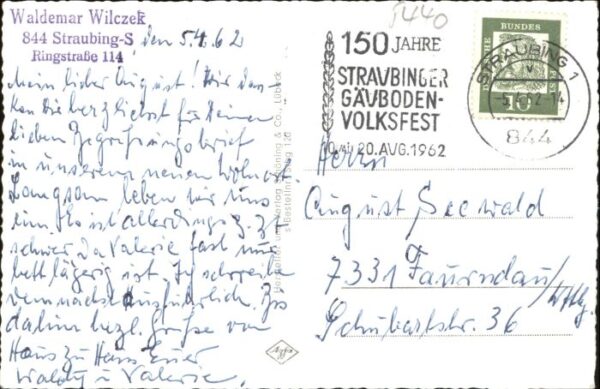 Waldemar Wilczek
844 Straubing-S
Ringstraße 114
den 5.4.62
Mein lieber August! Wir dan-
ken Die herzlichst für Deinen
lieben Begrüßungsbrief
in unserem neuen Wohnort.
Langsam leben wir uns
ein. Es ist allerdings z. Zt
schwer, da Valerie fast nur
bettlägerig ist. Ich schreibe
demnächst ausführlich. Bis
dahin herzl. Grüße von
Haus zu Haus Euer
Waldy u. Valerie.
5440
150 JAHRE
STRAUBINGER
GÄUBODEN-
VOLKSFEST
20. AUG. 1962
DEUTSCHE BUNDES
10
STRAUBING 1
844
Herrn
August Seewald
7331 Faurndau/Wttbg.
Schubartstr. 36
Schöning & Co., Lübeck
Agfa